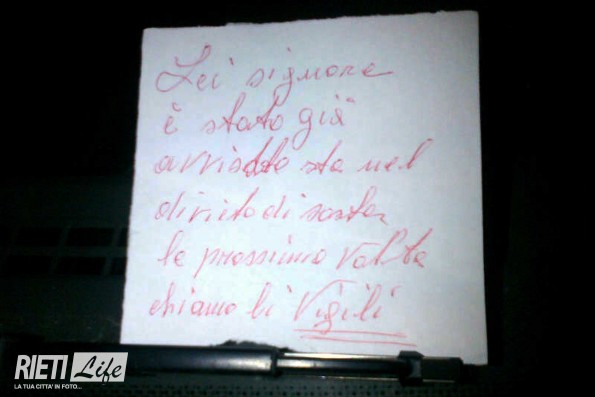 Lei signore
è stato già
avvisato sta nel
divieto di sosta
la prossima volta
chiamo li Vigili
RIETI Life
LA TUA CITTA' IN FOTO...